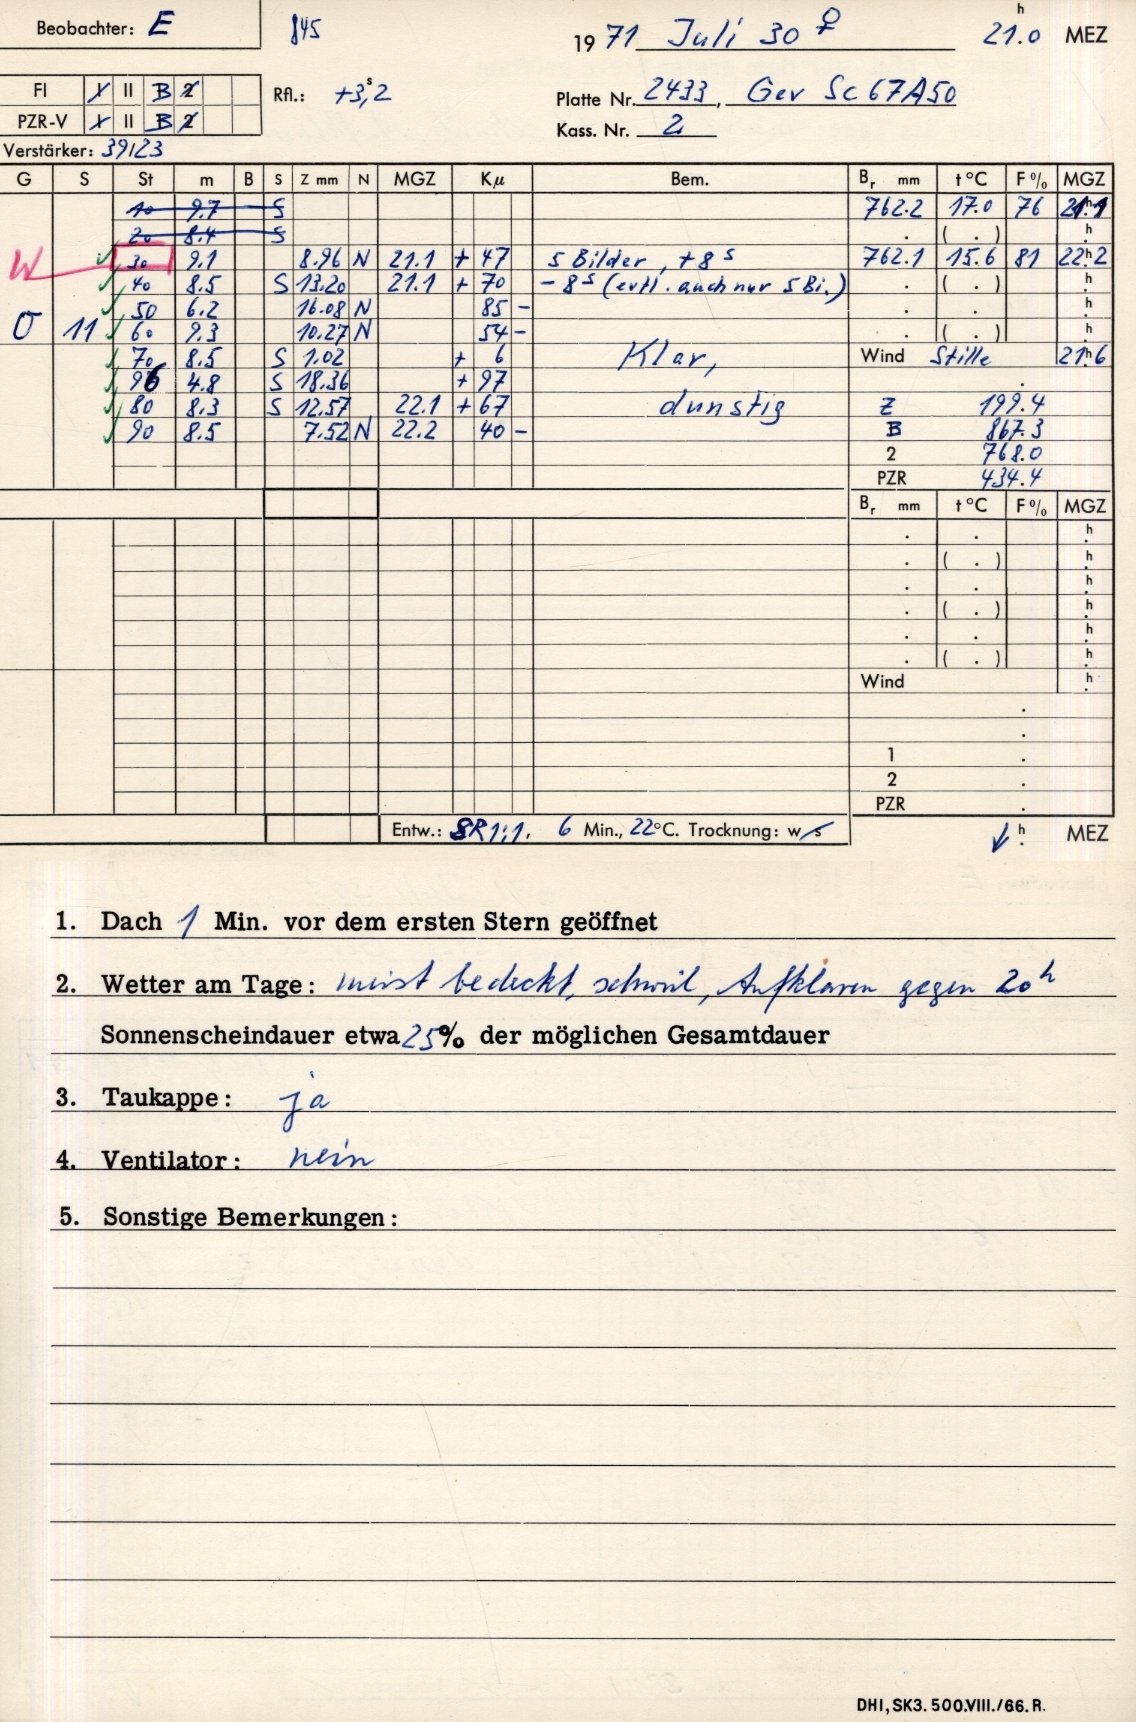 Beobachter: E 845 1971 Juli 30 ♀ 21.0 h MEZ
FI I II B 2 Rfl.: +3,2 s Platte Nr. 2433, Gev Sc67A50
PZR-V I II B 2 Kass. Nr. 2
Verstärker: 39/23
G S St m B S Z mm N MGZ Kµ Bem. Br mm t °C F % MGZ
10 9.7 S 762.2 17.0 76 21.1 h
20 8.4 S . ( . ) h
W 30 9.1 8.96 N 21.1 + 47 5 Bilder, +8 s 762.1 15.6 81 22.2 h
40 8.5 S 13.20 21.1 + 70 - 8 s (evtl. auch nur 5 Bi.) . ( . ) h
50 6.2 16.08 N 85 - . . h
O 11 60 9.3 10.27 N 54 - . ( . ) h
70 8.5 S 1.02 + 6 Klar, Wind Stille 21.6 h
96 4.8 S 18.36 + 97 .
80 8.3 S 12.57 22.1 + 67 dunstig Z 199.4
90 8.5 7.52 N 22.2 40 - B 867.3
2 768.0
PZR 434.4
Br mm t °C F % MGZ
. . h
. ( . ) h
. . h
. ( . ) h
. . h
. ( . ) h
Wind h
.
.
1 .
2 .
PZR .
Entw.: SR 1:1, 6 Min., 22 °C. Trocknung: w s h MEZ
1. Dach 1 Min. vor dem ersten Stern geöffnet
2. Wetter am Tage: meist bedeckt, schwül, Aufklaren gegen 20 h
Sonnenscheindauer etwa 25% der möglichen Gesamtdauer
3. Taukappe: ja
4. Ventilator: nein
5. Sonstige Bemerkungen:
DHI, SK3. 500.VIII./66. R.